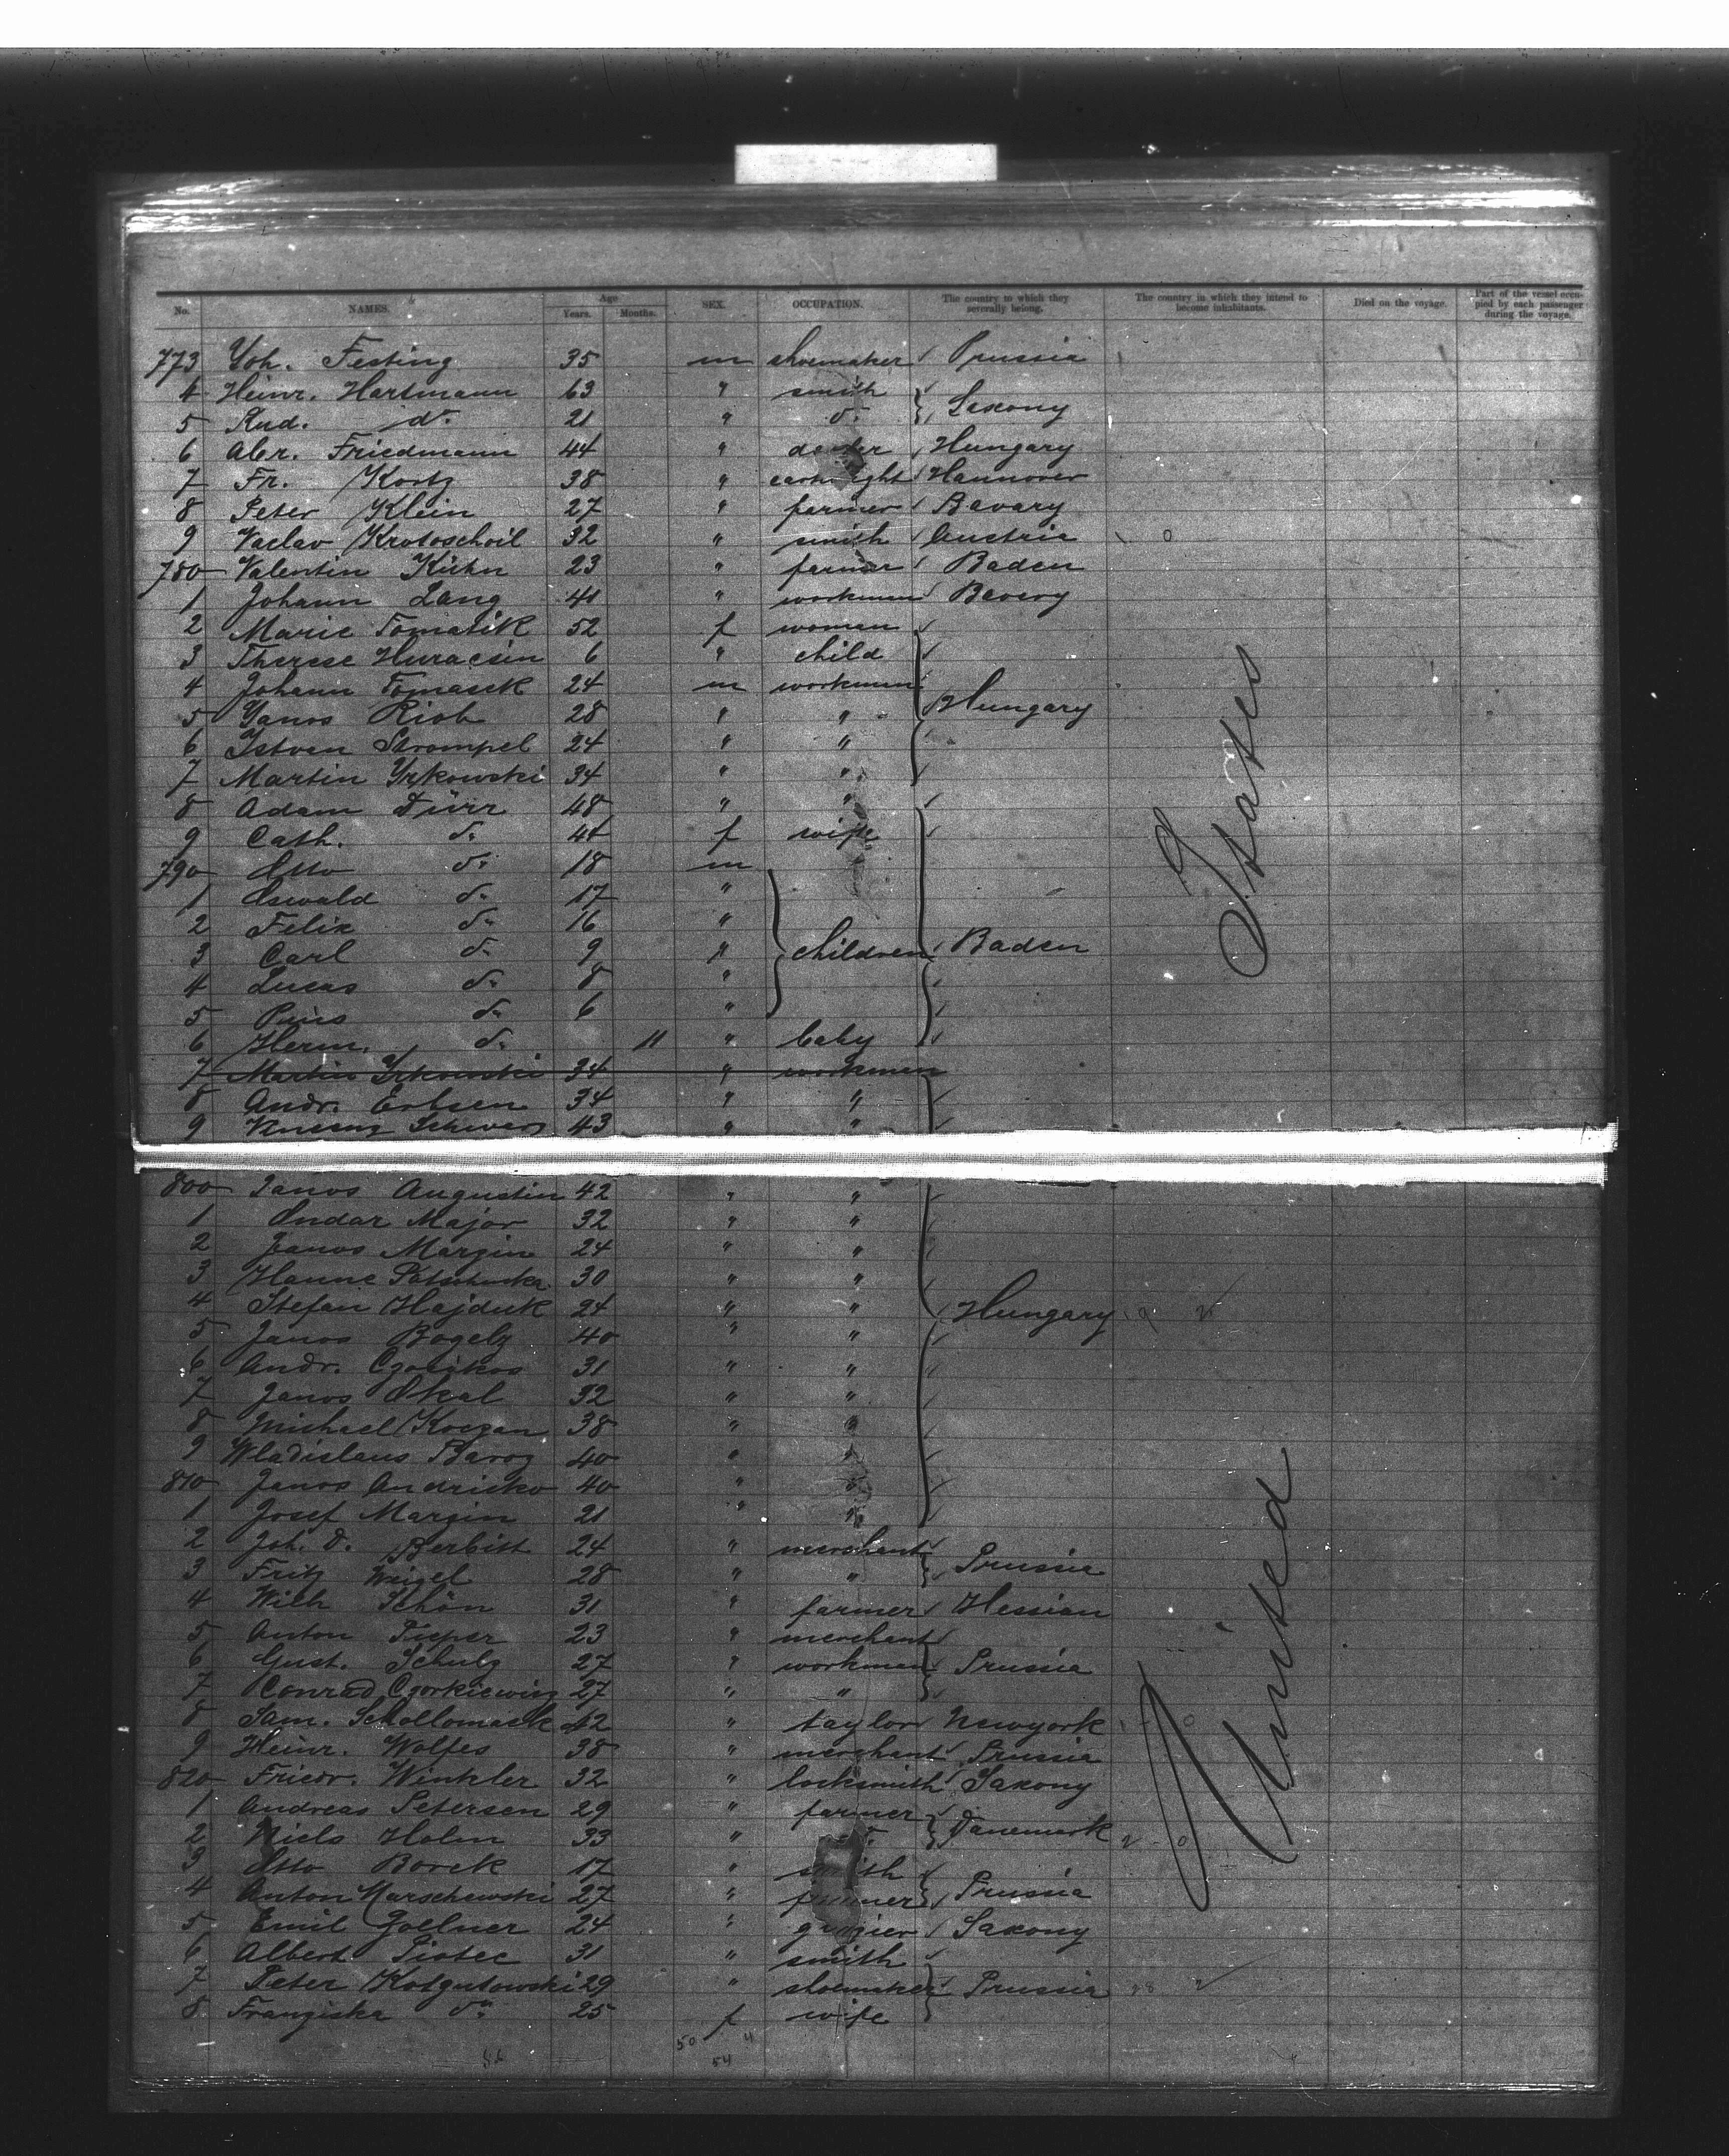 No. NAMES. Age Years. Months. SEX. OCCUPATION. The country to which they severally belong. The country in which they intend to become inhabitants. Died on the voyage. Part of the vessel occupied by each passenger during the voyage.
773 Joh. Festing 35 m shoemaker Prussia
4 Heinr. Hartmann 63 " smith
5 Rud. do. 21 " do. Saxony
6 Abr. Friedmann 44 " Hungary
7 Fr. Kortz 38 " Hannover
8 Peter Klein 27 " farmer Bavary
9 Vaclav Kratoschvil 32 " smith Austria
780 Valentin Kühn 23 " farmer Baden
1 Johann Lang 41 " workman Bavery
2 Marie Tomasik 52 f woman
3 Therese Huracsin 6 " child
4 Johann Tomasek 24 m workman
5 Janos Rioh 28 " " Hungary
6 Istvan Strompel 24 " "
7 Martin Yrkowski 34 " "
8 Adam Dürr 48 " "
9 Cath. do. 44 f wife
790 Otto do. 18 m
1 Oswald do. 17 "
2 Felix do. 16 "
3 Carl do. 9 " children Baden
4 Lucas do. 8 "
5 Pius do. 6 "
6 Herm. do. 11 " baby
7 Martin Yrkowski 34 " workman
8 Andr. Erbsen 34 " "
9 43 " "
800 Janos Augustin 42 " "
1 Andar Major 32 " "
2 Janos Margin 24 " "
3 Hanne 30 " "
4 Stefan Hajduk 24 " " Hungary
5 Janos Bogely 40 " "
6 Andr. 31 " "
7 Janos Skal 32 " "
8 Michael Koczan 38 " "
9 Wladislaus Baroz 40 " "
810 Janos Andrisko 40 " "
1 Josef Margin 21 " "
2 Joh. D. Berbist 24 " merchant
3 Fritz Weigel 28 " " Prussia
4 Wilh Schön 31 " farmer Hessian
5 Anton Pieper 23 " merchant
6 Gust. Schulz 27 " workman Prussia
7 Conrad Czorkiewicz 27 " "
8 Sam. 42 " taylor Newyork
9 Heinr. Wolfes 38 " merchant Prussia
820 Friedr. Winkler 32 " locksmith Saxony
1 Andreas Petersen 29 " farmer
2 Niels Holm 33 " do. Danemark
3 Otto Borek 17 " smith
4 Anton Marschewski 27 " farmer Prussia
5 Emil Gollner 24 " Saxony
6 Albert Pistee 31 " smith
7 Peter Kotgutowski 29 " shoemaker Prussia
8 Franziska do. 25 f wife
50 4
54
United States